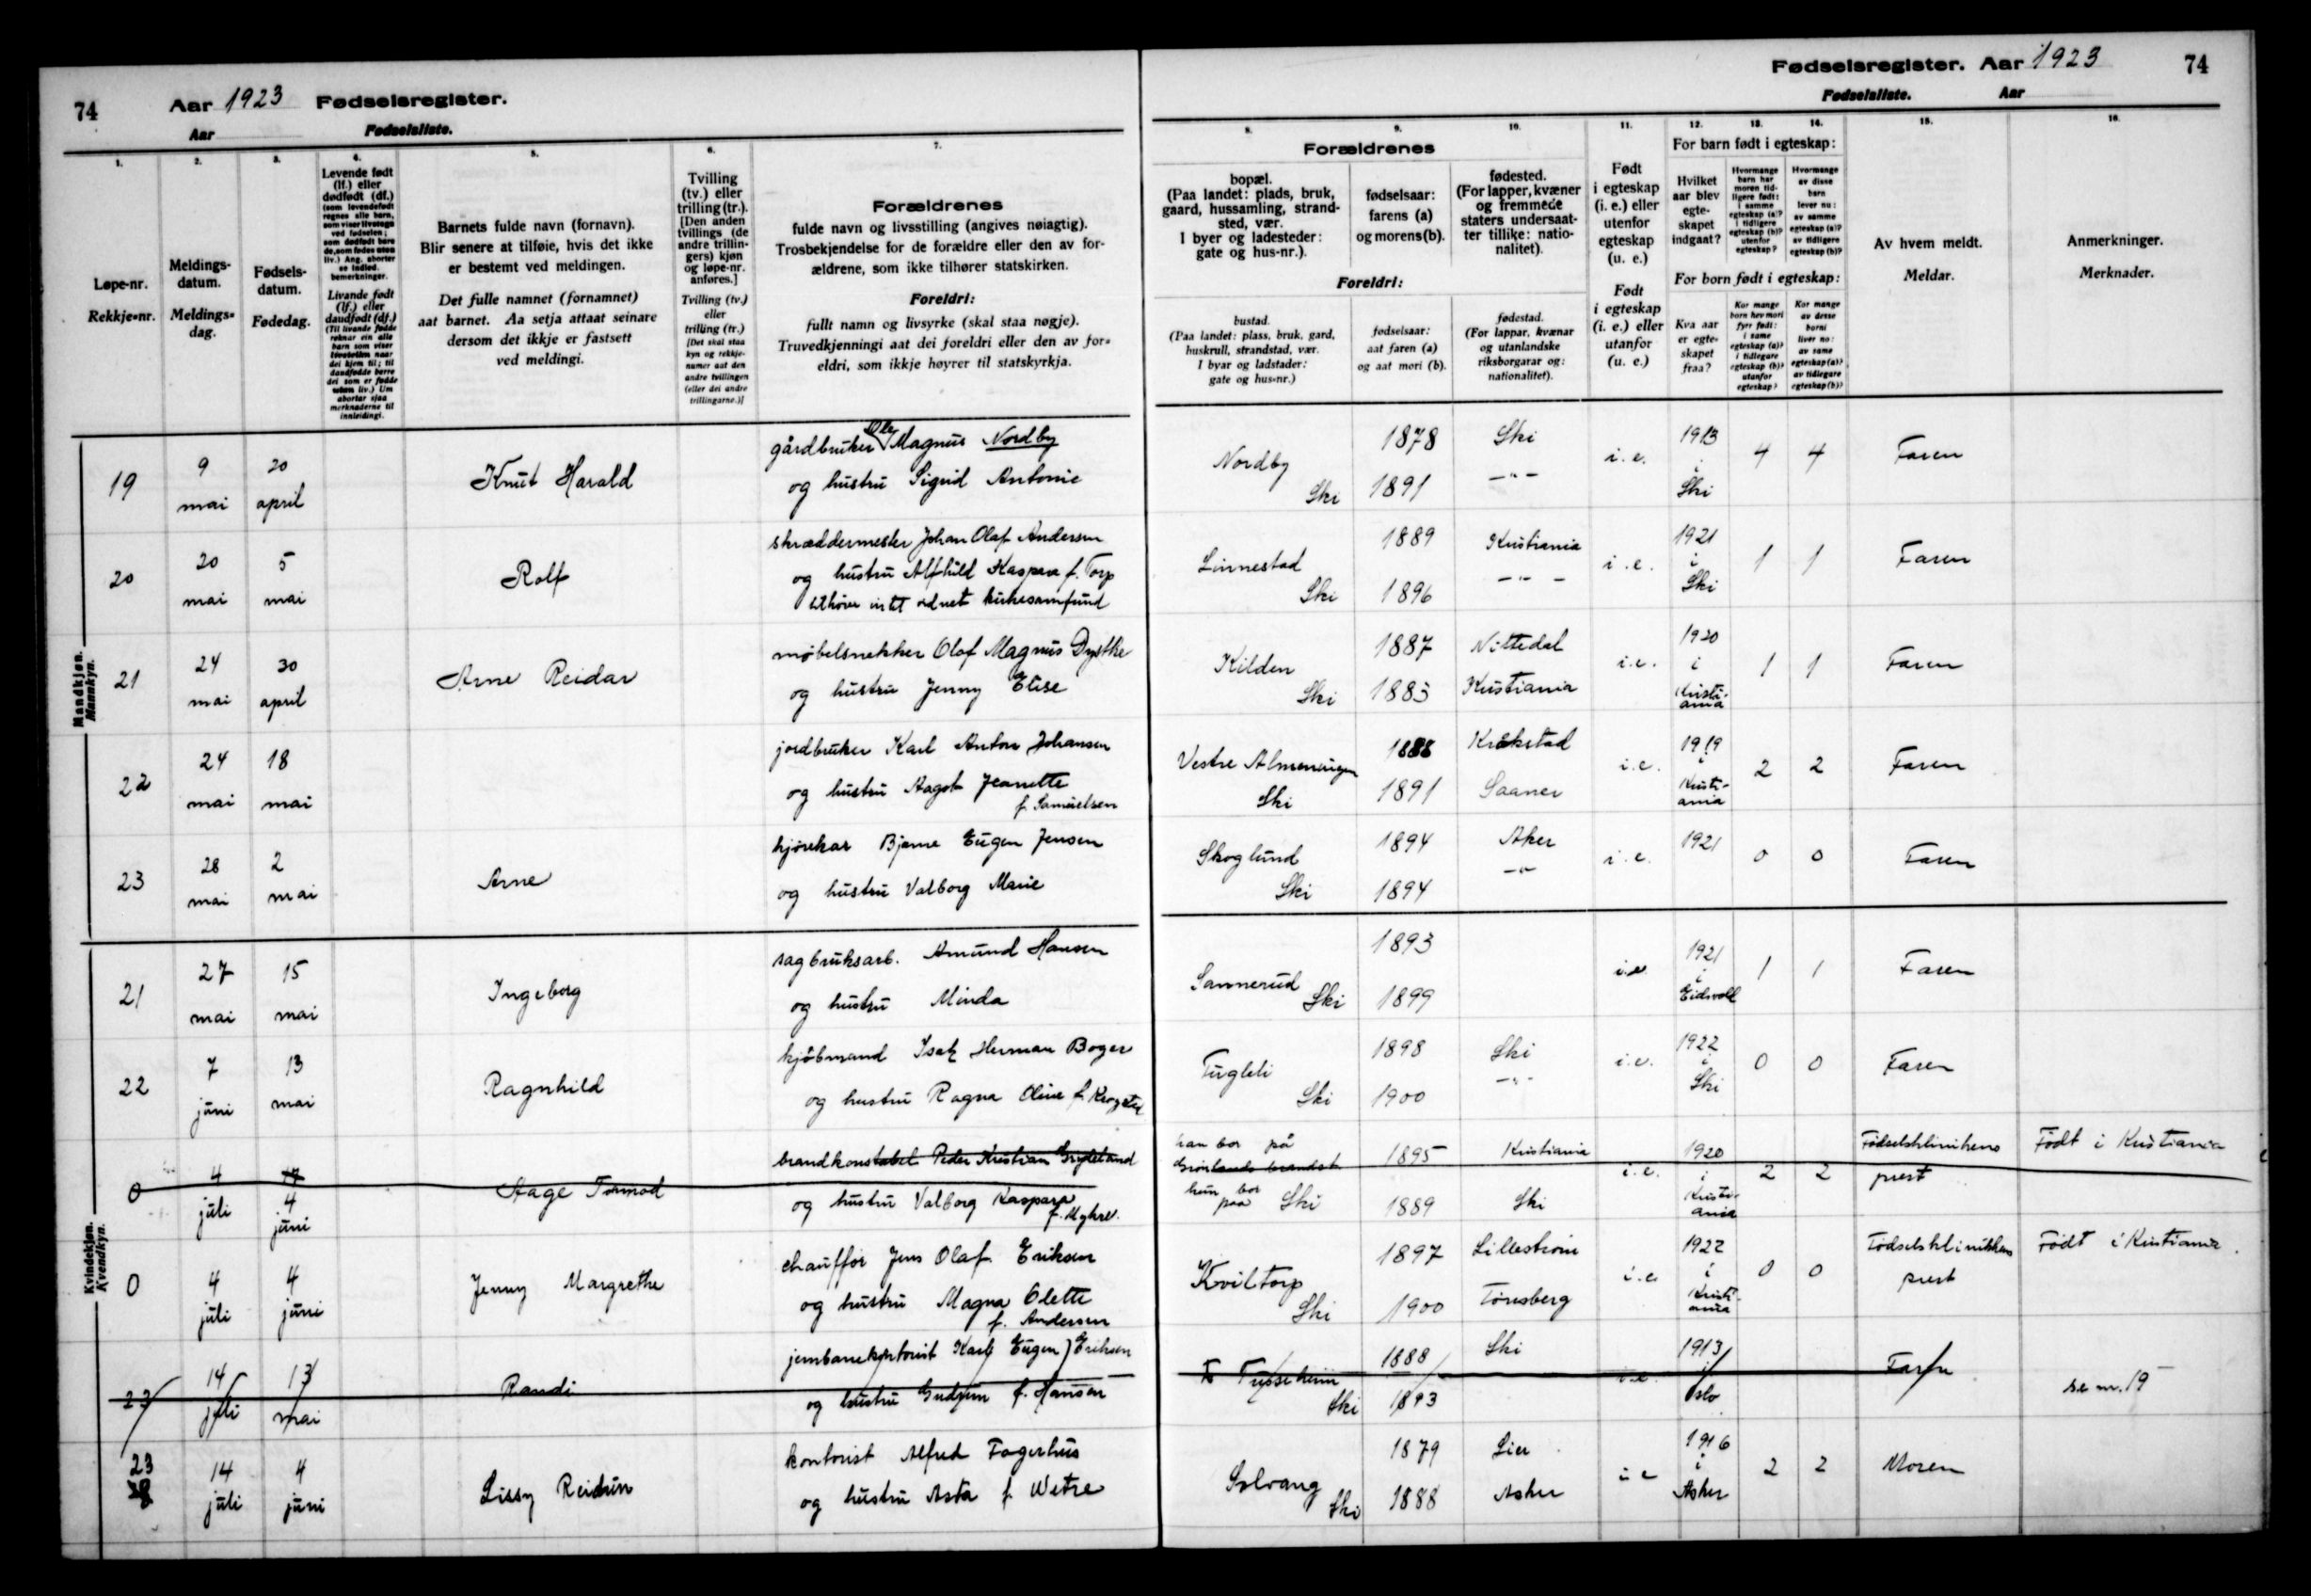 74 Aar 1923 Fødselsregister.
Aar Fødselsliste.
Fødselsregister. Aar 1923 74
Fødselsliste. Aar
1.
Løpe-nr.
Rekkje-nr.
2.
Meldings-
datum.
Meldings-
dag.
3.
Fødsels-
datum.
Fødedag.
4.
Levende født
(lf.) eller
dødfødt (df.)
Livande født
(lf.) eller
daudfødt (df.)
5.
Barnets fulde navn (fornavn).
Blir senere at tilføie, hvis det ikke
er bestemt ved meldingen.
Det fulle namnet (fornamnet)
aat barnet. Aa setja attaat seinare
dersom det ikkje er fastsett
ved meldingi.
6.
Tvilling
(tv.) eller
trilling (tr.).
[Den anden
tvillings (de
andre trillin-
gers) kjøn
og løpe-nr.
anføres.]
Tvilling (tv.)
eller
trilling (tr.)
[Det skal staa
kyn og rekkje-
numer aat den
andre tvillingen
(eller dei andre
trillingarne.)]
7.
Forældrenes
fulde navn og livsstilling (angives nøiagtig).
Trosbekjendelse for de forældre eller den av for-
ældrene, som ikke tilhører statskirken.
Foreldri:
fullt namn og livsyrke (skal staa nøgje).
Truvedkjenningi aat dei foreldri eller den av for-
eldri, som ikkje høyrer til statskyrkja.
Forældrenes
8.
bopæl.
(Paa landet: plads, bruk,
gaard, hussamling, strand-
sted, vær.
I byer og ladesteder:
gate og hus-nr.).
9.
fødselsaar:
farens (a)
og morens (b).
10.
fødested.
(For lapper, kvæner
og fremmede
staters undersaat-
ter tillike: natio-
nalitet).
Foreldri:
bustad.
(Paa landet: plass, bruk, gard,
huskrull, strandstad, vær.
I byar og ladstader:
gate og hus-nr.)
fødselsaar:
aat faren (a)
og aat mori (b).
fødestad.
(For lappar, kvænar
og utanlandske
riksborgarar og:
nationalitet).
11.
Født
i egteskap
(i. e.) eller
utenfor
egteskap
(u. e.)
Født
i egteskap
(i. e.) eller
utanfor
(u. e.)
12. 13. 14.
For barn født i egteskap:
Hvilket
aar blev
egte-
skapet
indgaat?
Hvormange
barn har
moren tid-
ligere født:
i samme
egteskap (a)?
i tidligere
egteskap (b)?
utenfor
egteskap?
Hvormange
av disse
barn
lever nu:
av samme
egteskap (a)?
av tidligere
egteskap (b)?
For born født i egteskap:
Kva aar
er egte-
skapet
fraa?
Kor mange
born hev mori
fyrr født:
i same
egteskap (a)?
i tidlegare
egteskap (b)?
utanfor
egteskap?
Kor mange
av desse
borni
liver no:
av same
egteskap (a)?
av tidlegare
egteskap (b)?
15.
Av hvem meldt.
Meldar.
16.
Anmerkninger.
Merknader.
Mandkjøn.
Mannkyn.
19 9 mai 20 april Knut Harald
gårdbruker Ole Magnus Nordby
og hustru Sigrid Antonie
Nordby Ski 1878 Ski i.e. 1913 i Ski 4 4 Faren
1891 —"—
20 20 mai 5 mai Rolf
skræddermester Johan Olaf Andersen
og hustru Alfhild Kaspara f. Torp
tilhører intet ordnet kirkesamfund
Linnestad Ski 1889 Kristiania i.e. 1921 i Ski 1 1 Faren
1896 —"—
21 24 mai 30 april Arne Reidar
møbelsnekker Olaf Magnus Dysthe
og hustru Jenny Elise
Kilden Ski 1887 Nittedal i.e. 1920 i Kristi-ania 1 1 Faren
1883 Kristiania
22 24 mai 18 mai
jordbruker Karl Anton Johansen
og hustru Aagot Jeanette
f. Samuelsen
Vestre Almenningen Ski 1888 Kråkstad i.e. 1919 i Kristi-ania 2 2 Faren
1891 Saaner
23 28 mai 2 mai Arne
kjørekar Bjarne Eugen Jensen
og hustru Valborg Marie
Skoglund Ski 1894 Aker i.e. 1921 0 0 Faren
1894 —"—
Kvindekjøn.
Kvendkyn.
21 27 mai 15 mai Ingeborg
sagbruksarb. Amund Hansen
og hustru Minda
Sannerud Ski 1893 i.e 1921 i Eidsvoll 1 1 Faren
1899
22 7 juni 13 mai Ragnhild
kjøbmand Isak Herman Boger
og hustru Ragna Oline f. Krogsted
Fugleli Ski 1898 Ski i.e. 1922 i Ski 0 0 Faren
1900 —"—
0 4 juli 4 juni Aage Tormod
brandkonstabel Peder Kristian Grydeland
og hustru Valborg Kaspara
f. Myhre.
han bor på
Grønlands brandst.
hun bor
paa Ski
1895 Kristiania i.e. 1920 i Kristi-ania 2 2 Fødselsklinikens prest Født i Kristiania
1889 Ski
0 4 juli 4 juni Jenny Margrethe
chauffør Jens Olaf Eriksen
og hustru Magna Olette
f. Andersen
Kviltorp Ski 1897 Lillestrøm i.e. 1922 i Kristi-ania 0 0 Fødselsklinikkens prest Født i Kristiania.
1900 Tønsberg
23 14 juli 13 mai Randi
jernbanekontorist Karl Eugen Eriksen
og hustru Gudrun f. Hansen
Tusseheim Ski 1888 Ski i.e. 1913 i Oslo Faren se nr. 19
1893
23 14 juli 4 juni Lissy Reidun
kontorist Alfred Fagerhus
og hustru Asta f. Wetre
Solvang Ski 1879 Lier i e 1916 i Asker 2 2 Moren
1888 Asker